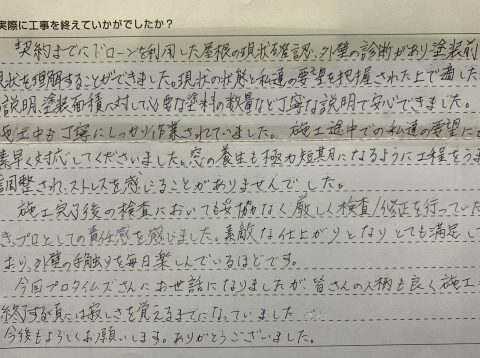 実際に工事を終えていかがでしたか?
契約までにドローンを利用した屋根の現状確認、外壁の診断があり塗装前
現状を理解することができました。現状の状態と私達の要望を把握された上で適した
の説明、塗装面積に対して必要な塗料の数量など丁寧な説明で安心できました。
施工中も丁寧にしっかり作業されていました。施工途中での私達の要望に
素早く対応してくださいました。窓の養生も極力短期になるように工程をうま
調整され、ストレスを感じることがありませんでした。
施工完了後の検査においても妥協なく厳しく検査/修正を行っていた
き、プロとしての責任感を感じました。素敵な仕上がりとなりとても満足して
おり、外壁の手触りを毎日楽しんでいるほどです。
今回プロタイムズさんにお世話になりましたが皆さんの人柄も良く施工
終了する頃には寂しさを覚えるまでになっていました
今後もよろしくお願いします。ありがとうございました。